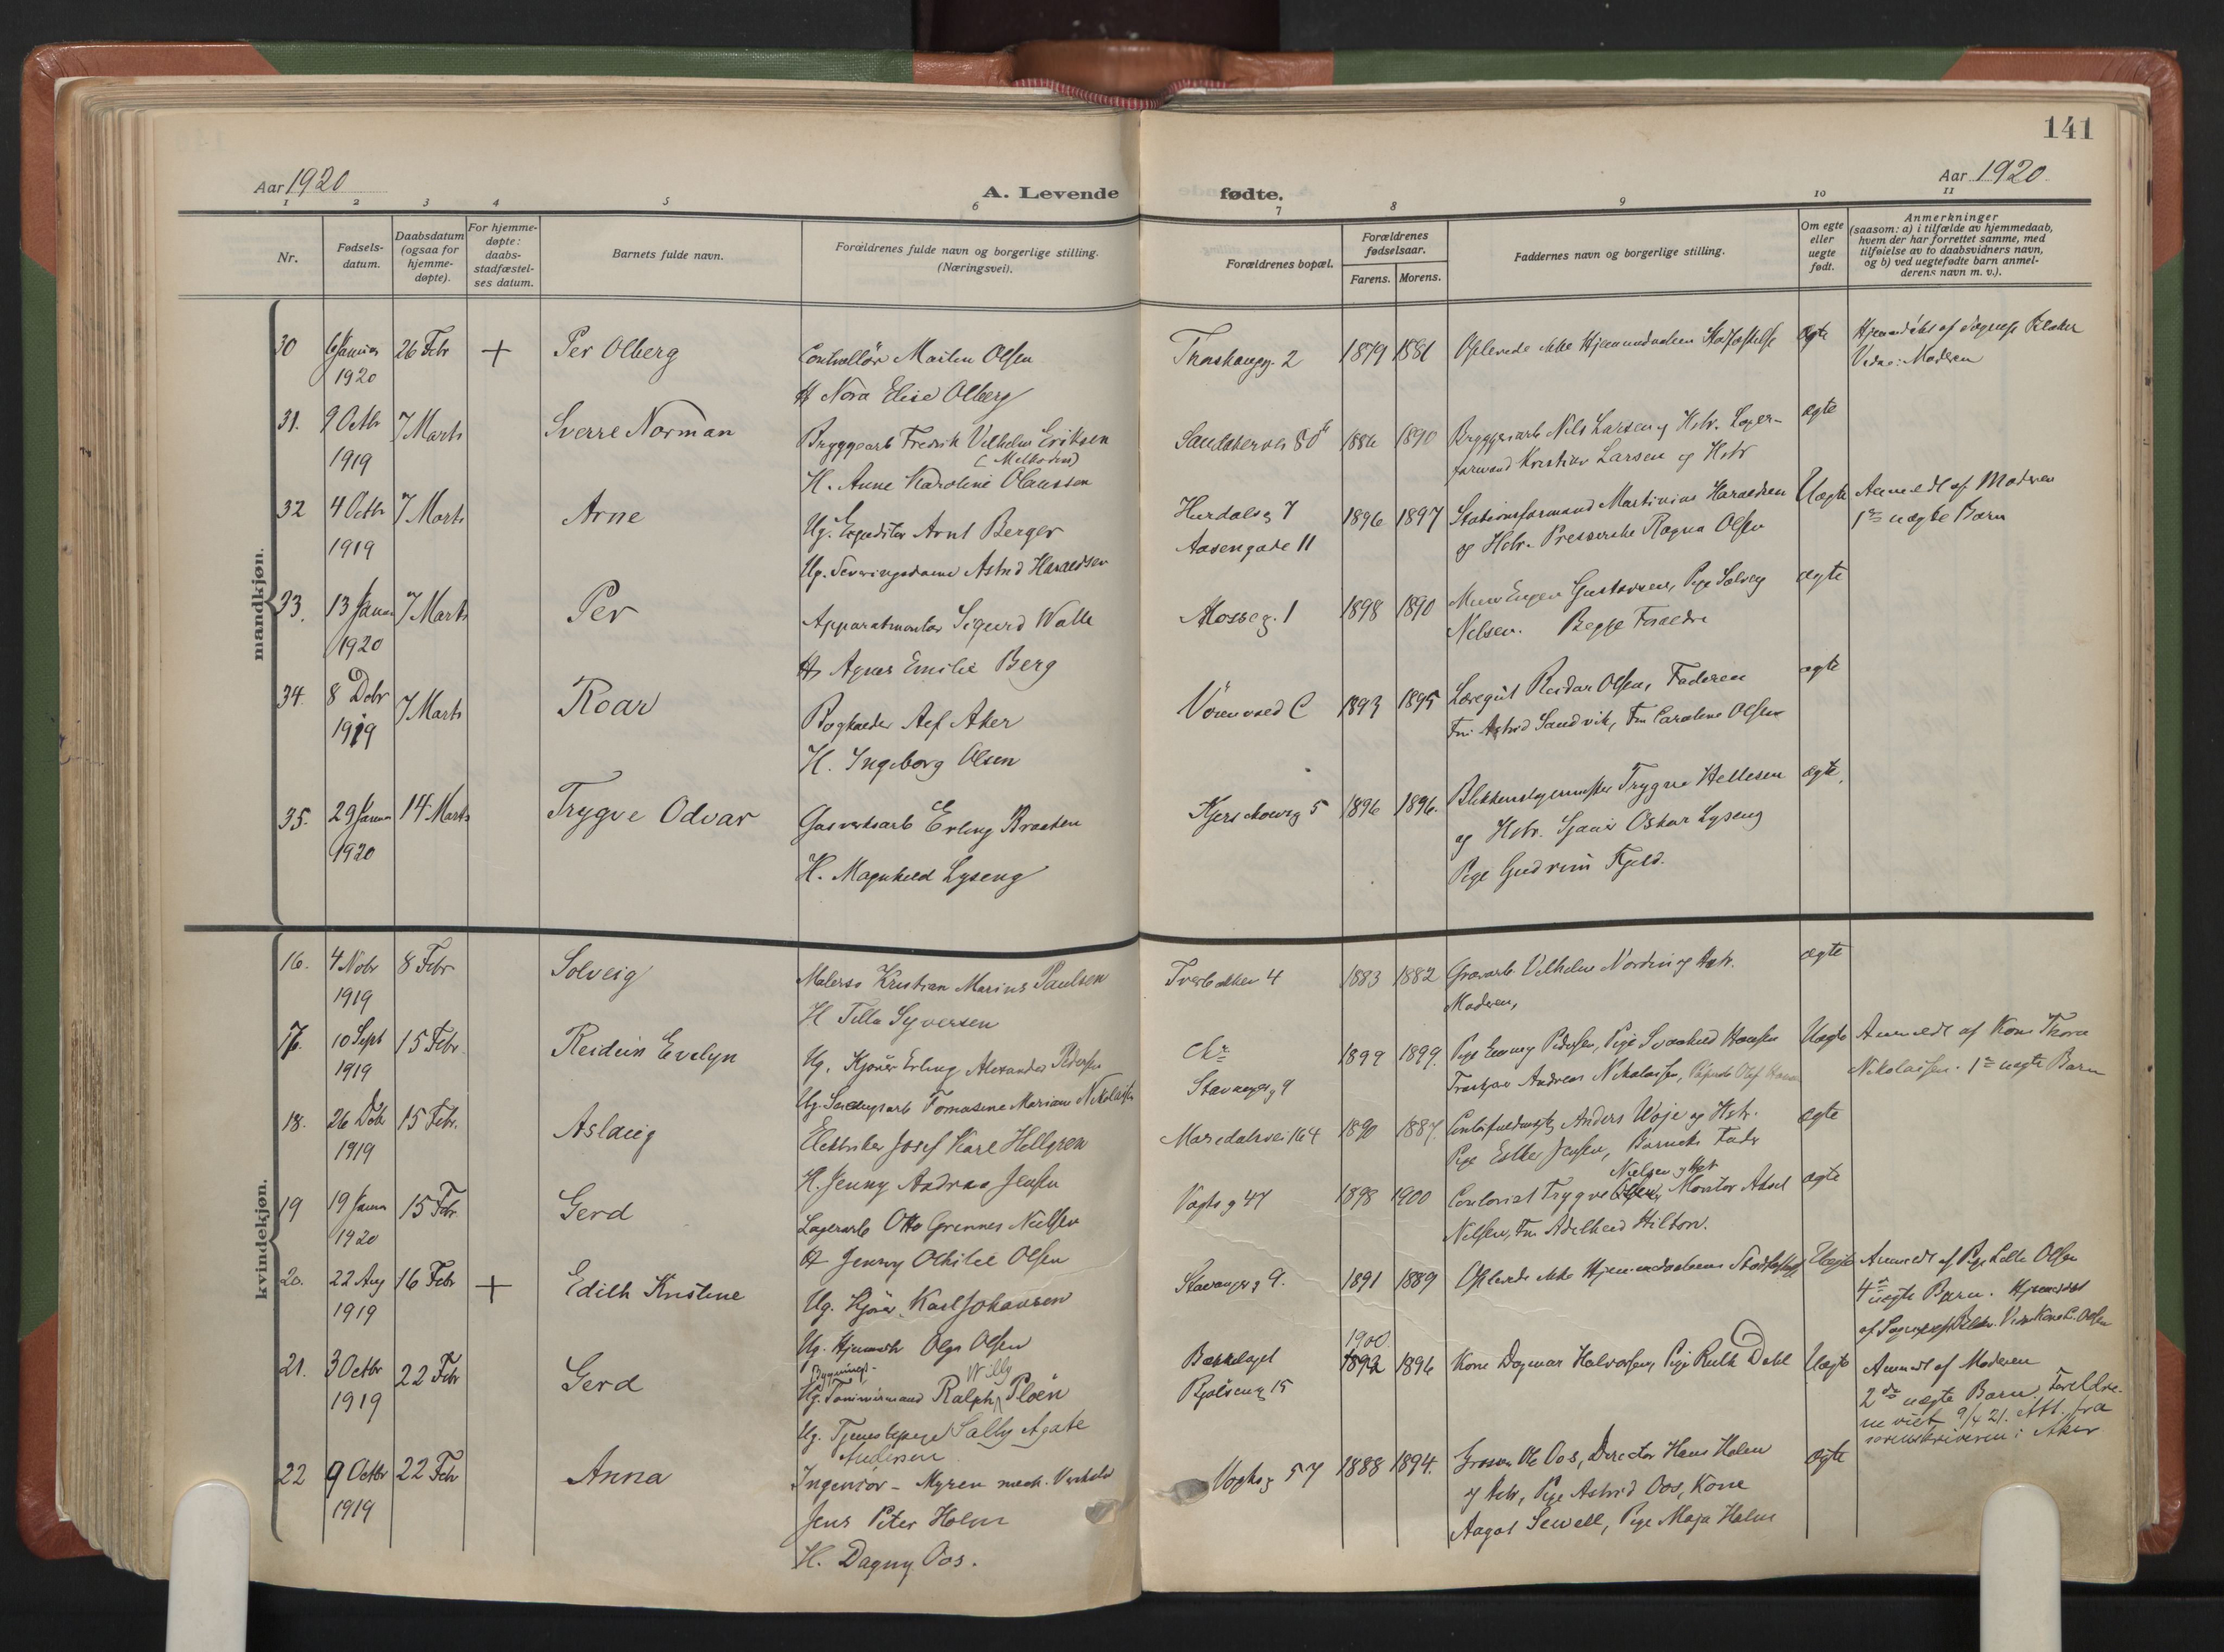 141
Aar 1920
A. Levende
fødte.
Aar 1920
1 2 3 4 5 6 7 8 9 10 11
Nr.
Fødsels-
datum.
Daabsdatum
(ogsaa for
hjemme-
døpte).
For hjemme-
døpte:
daabs-
stadfæstel-
ses datum.
Barnets fulde navn.
Forældrenes fulde navn og borgerlige stilling.
(Næringsvei).
Forældrenes bopæl.
Forældrenes
fødselsaar.
Farens. Morens.
Faddernes navn og borgerlige stilling.
Om egte
eller
uegte
født.
Anmerkninger
(saasom: a) i tilfælde av hjemmedaab,
hvem der har forrettet samme, med
tilføielse av to daabsvidners navn,
og b) ved uegtefødte barn anmel-
derens navn m. v.).
mandkjøn.
30 6 Januar 26 Febr + Per Olberg
1920
Controllör Martin Olsen
H Nora Elise Olberg
2 1879 1881
Oplevede ikke Hjemmedaabens Stadfæstelse ægte
Moderen
31. 9 Octbr 7 Marts Sverre Norman
1919
Bryggearb Fredrik Vilhelm Eriksen
H. Anne Karoline Olaussen
1886 1890
Bryggeriarb Nils Larsen og Hstr. Lager-
formand Kristian Larsen og Hstr
ægte
32 4 Octbr 7 Marts Arne
1919
Ug. Expeditör Arnt Berger
Ug. Serveringsdame Astrid Haraldsen
Hurdalsg 7
Aasengade 11
1896 1897
Stationsformand Martinius Haraldsen
og Hstr. Presserske Ragna Olsen
Uægte Anmeldt af Moderen
1ste uægte Barn
33. 13 Januar 7 Marts Per
1920
Apparatmontør Sigurd Walle
H Agnes Emilie Berg
Mosseg. 1 1898 1890
Murer Eugen Gustavsen, Pige Solveig
Nelsen. Begge Forældre
ægte
34. 8 Debr 7 Marts Roar
1919
Bogholder Alf Aker
H. Ingeborg Olsen
C 1893 1895
Læregut Reidar Olsen, Faderen
Fru Astrid Sandvik, Fru Caroline Olsen
ægte
35. 29 Januar 14 Marts Trygve Odvar
1920
Gasverksarb Erling Braaten
H. Magnhild Lyseng
Kjerschowsg 5 1896 1896.
Blikkenslagermester Trygve Hellesen
og Hstr. Oskar Lyseng
Pige Gudrun Fjeld.
ægte.
kvindekjøn.
16. 4 Nobr 8 Febr Solveig
1919
Malersv Kristian Marius Paulsen
H Tilla Syversen
Tverbakken 4 1883 1882
Vilhelm Nordin og Hstr.
Moderen,
ægte
17. 10 Sept 15 Febr. Reidun Evelyn
1919
Ug. Kjører Erling Alexander Pedersen
Ug. Tomasine Mariane Nikolaisen
Stavangerg 9
1899 1899.
Pige Pedersen, Pige Svanhild Hansen
Andreas Nikolaisen, Olaf
Uægte Anmeldt af Kone Thora
Nikolaisen. 1ste uægte Barn
18. 26 Debr 15 Febr. Aslaug
1919
Elektriker Josef Karl Hellgren
H. Jenny Andrea Jensen
Maridalsvei 164 1890 1887.
Anders Woje og Hstr.
Pige Esther Jensen, Barnets Fader
ægte
19 19 Januar 15 Febr. Gerd
1920
Lagerarb Otto Grennes Nielsen
H Jenny Othilie Olsen
Vogts g 47 1898 1900
Nielsen og Hstr
Contorist Trygve Montør Aksel
Nilsen, Fru Adelheid Hilton.
ægte
20. 22 Aug 16 Febr + Edith Kristine
1919
Ug. Kjører Karl Johansen
Ug. Olga Olsen
Stavangerg 9. 1891 1889
Oplevede ikke Hjemmedaabens Stadfæstelse
Uægte Anmeldt af Pige Olsen
4de uægte Barn. Hjemmedøbt
21. 3 Octbr 22 Febr Gerd
1919
Bygnings-
Willy
Ug. Tømmermand Ralph Ploën
Ug. Tjenestepige Sally Agate
Andersen
Bækkelaget
Bjølseng 15
1900
1892 1896
Kone Dagmar Halvorsen, Pige Ruth Dahl
Uægte Anmeldt af Moderen
2det uægte Barn. Foreldre-
ne viet 9/4 21. Att. fra
sorenskriveren i Aker
22 9 Octbr 22 Febr Anna
1919
Ingeniør - Myren mek. Verksted
Jens Peter Holm
H. Dagny Oos.
Vogtsg 57 1888 1894.
Grosser Ole Oos, Director Hans Holm
og Hstr, Pige Astrid Oos, Kone
Aagot Sewell, Pige Maja Holm
ægte